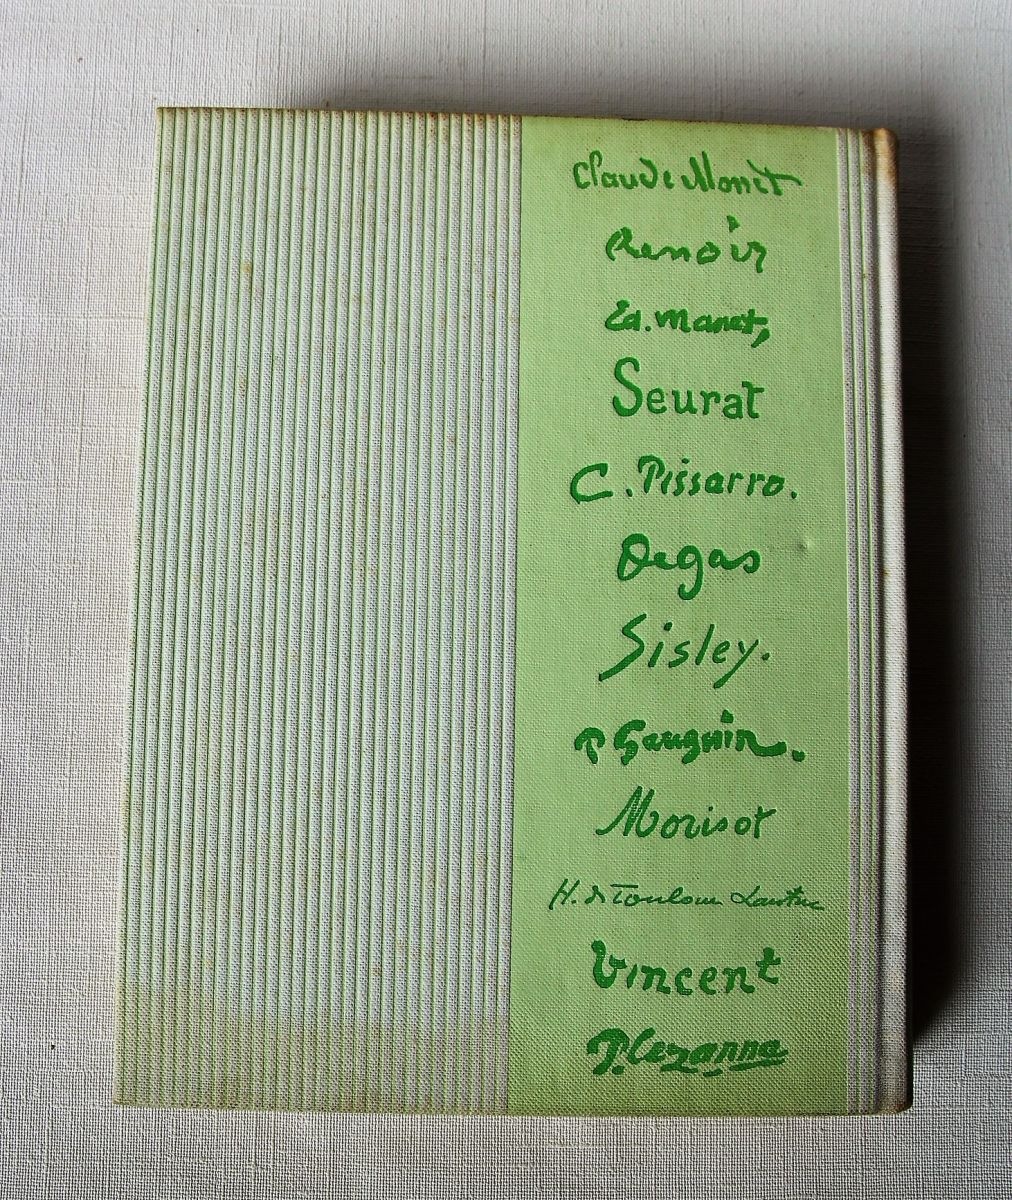 Claude Monet
Renoir
Ed. Manet,
Seurat
C. Pissarro.
Degas
Sisley.
P Gauguin.
Morisot
H. de Toulouse Lautrec
Vincent
P. Cezanne